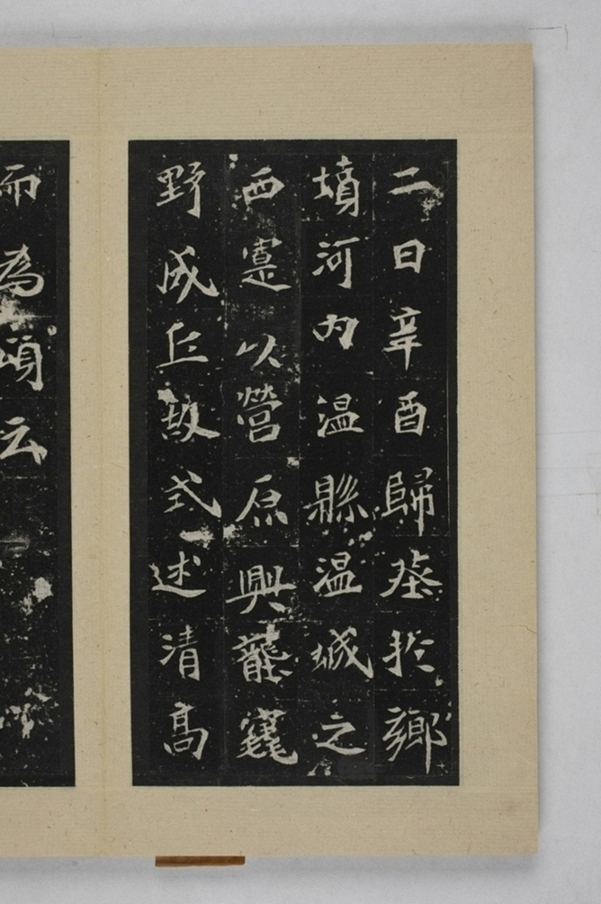 二日辛酉歸塟扵鄉
墳河内温縣温城之
西以營原興壟
野成丘故式述清高
而為頌云